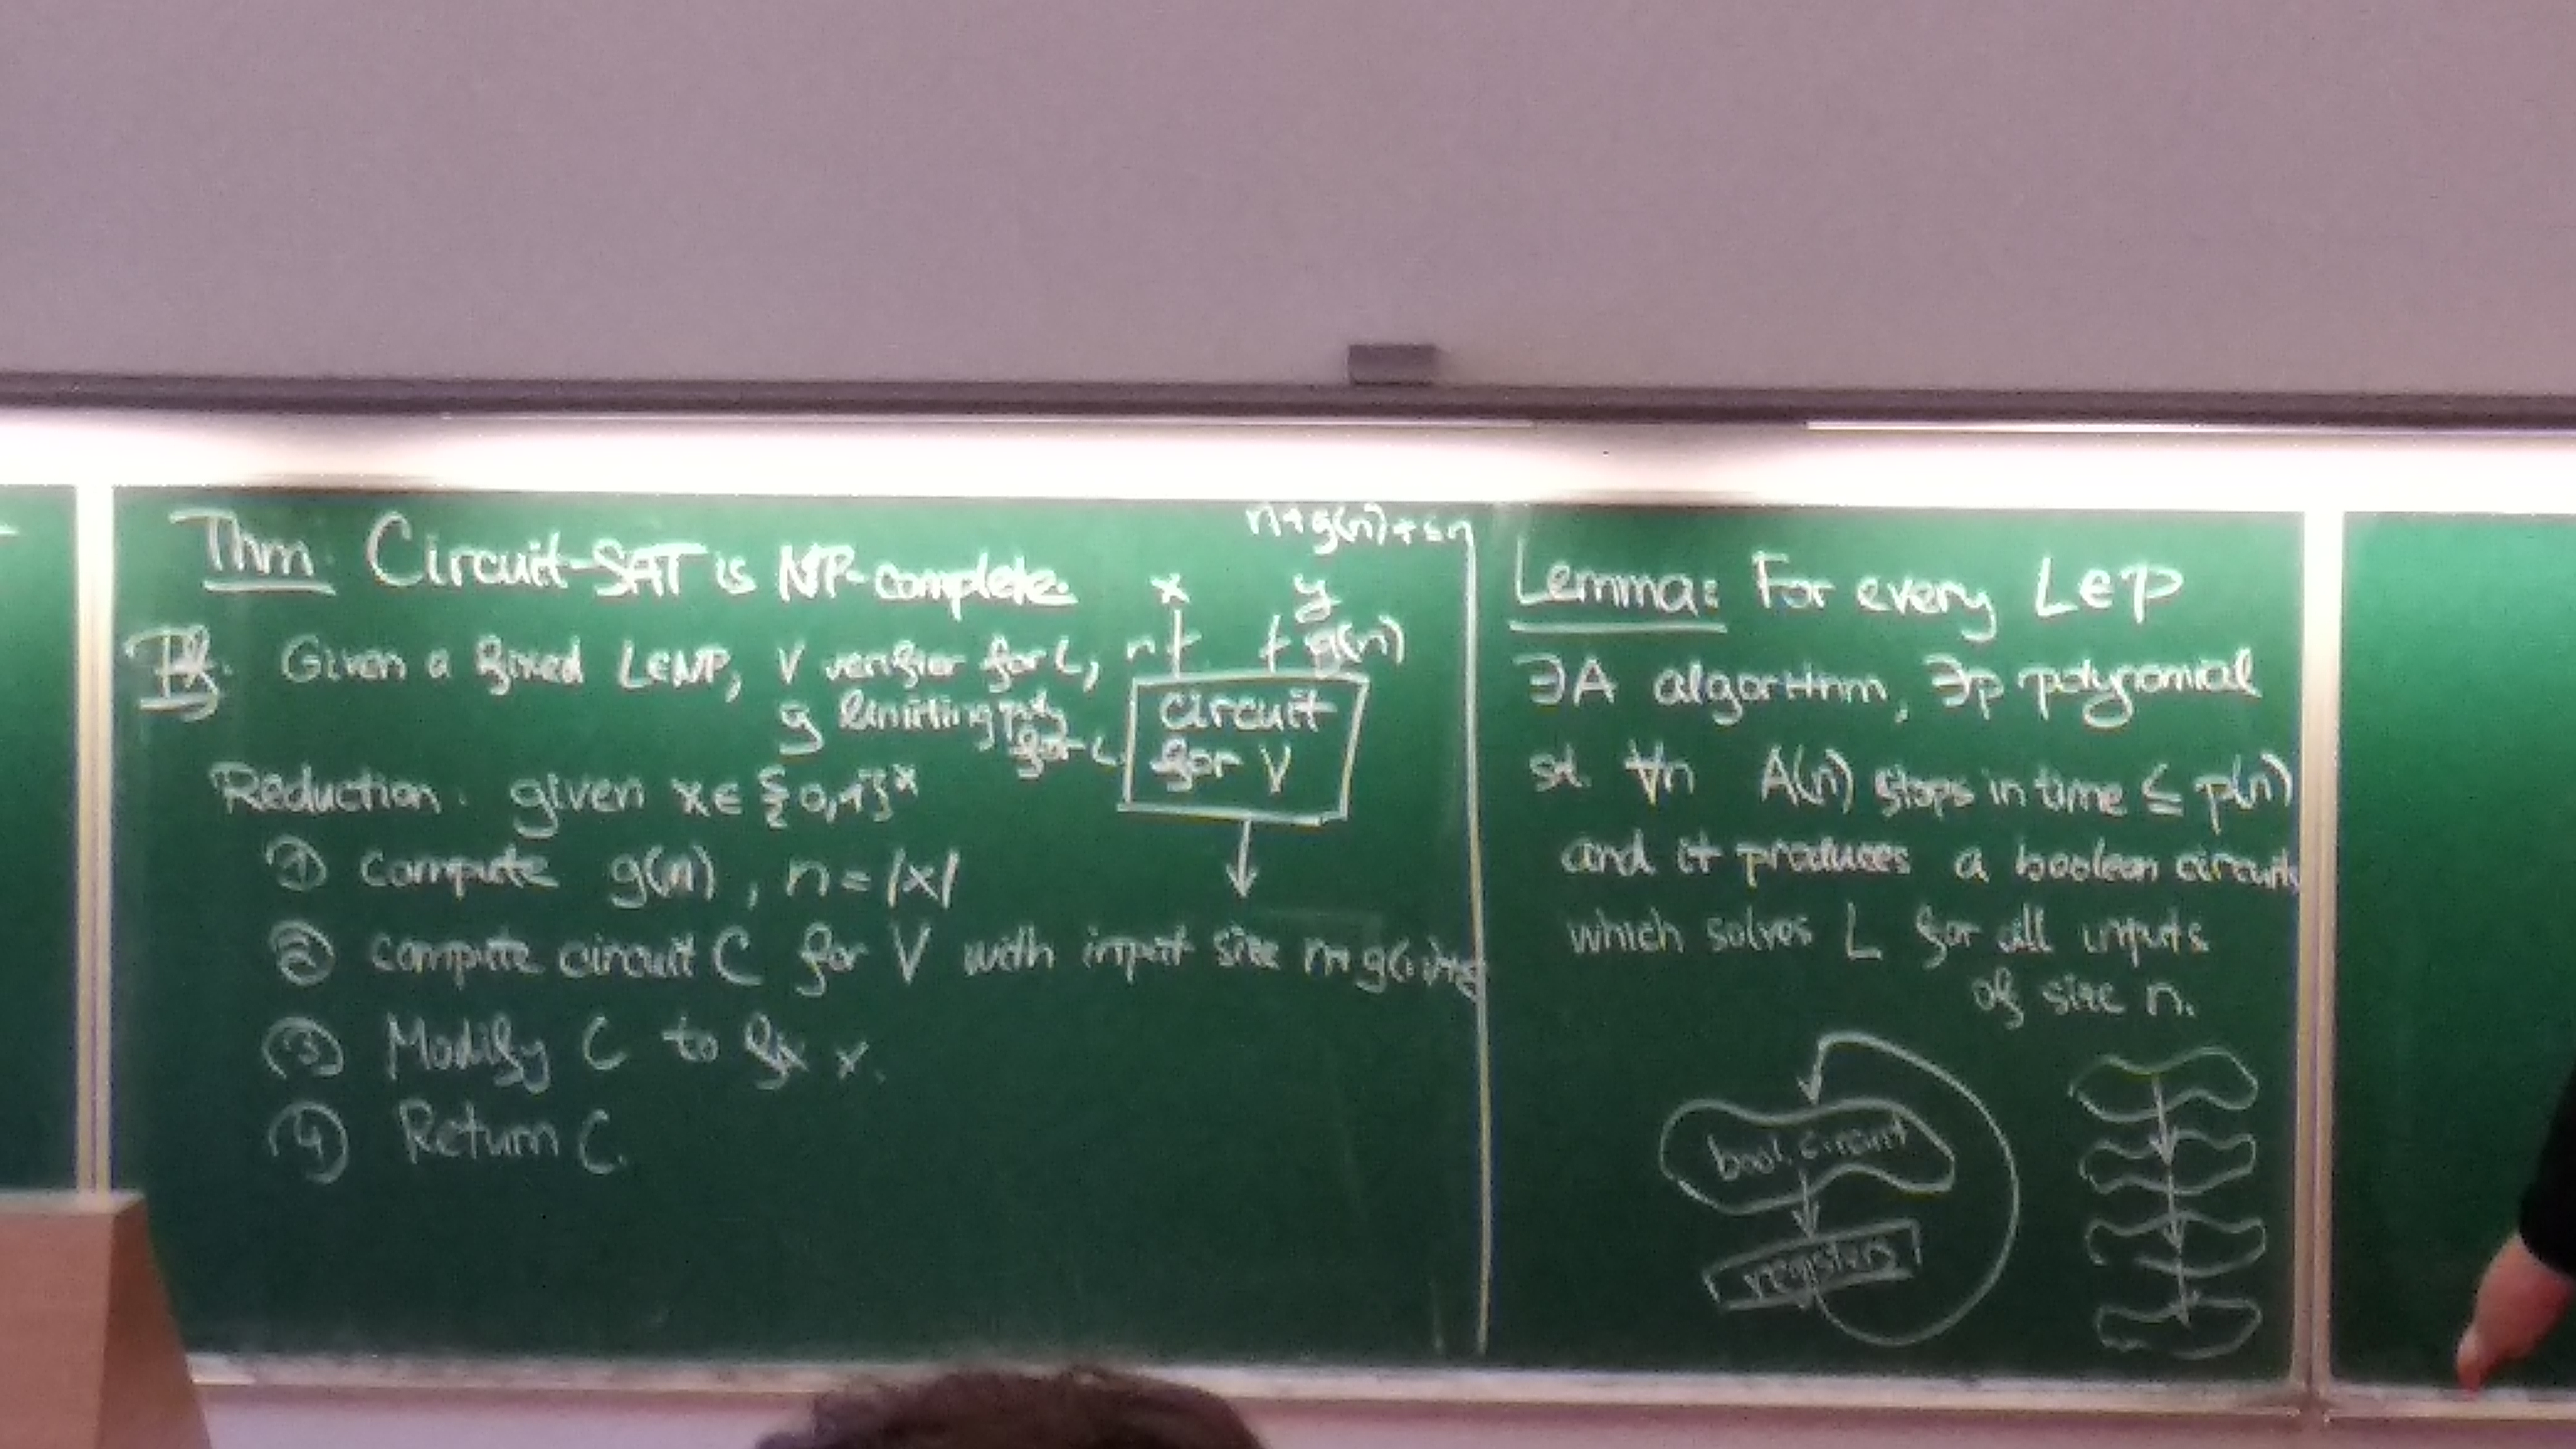 Thm. Circuit-SAT is NP-complete.
Pf. Given a fixed L∈NP, V verifier for L,
g limiting poly for L
n+g(n)+
x y
n g(n)
circuit
for V
Reduction. given x∈{0,1}*
① compute g(n), n=|x|
② compute circuit C for V with input size n+g(n)
③ Modify C to fix x.
④ Return C.
Lemma: For every L∈P
∃A algorithm, ∃p polynomial
st. ∀n A(n) stops in time ≤ p(n)
and it produces a boolean circuit
which solves L for all inputs
of size n.
bool. circuit
registers